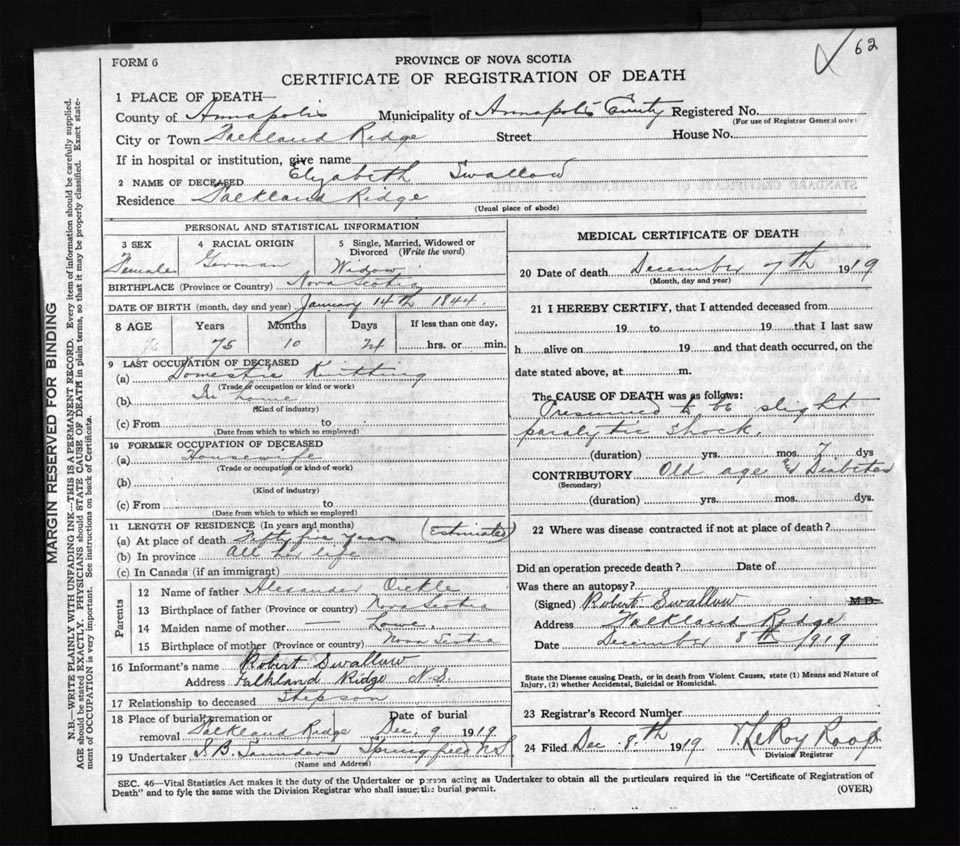 62
FORM 6
PROVINCE OF NOVA SCOTIA
CERTIFICATE OF REGISTRATION OF DEATH
1 PLACE OF DEATH—
County of Annapolis Municipality of Annapolis County Registered No.
(For use of Registrar General only)
City or Town Falkland Ridge Street House No.
If in hospital or institution, give name
2 NAME OF DECEASED Elizabeth Swallow
Residence Falkland Ridge
(Usual place of abode)
PERSONAL AND STATISTICAL INFORMATION
3 SEX 4 RACIAL ORIGIN 5 Single, Married, Widowed or
Divorced (Write the word)
Female German Widow
BIRTHPLACE (Province or Country) Nova Scotia
DATE OF BIRTH (month, day and year) January 14th 1844.
8 AGE Years Months Days If less than one day,
75 10 24 hrs. or min.
9 LAST OCCUPATION OF DECEASED
(a) Domestic Knitting
(Trade or occupation or kind of work)
(b) In home
(Kind of industry)
(c) From to
(Date from which to which so employed)
10 FORMER OCCUPATION OF DECEASED
(a) Housewife
(Trade or occupation or kind of work)
(b)
(Kind of industry)
(c) From to
(Date from which to which so employed)
11 LENGTH OF RESIDENCE (In years and months)
(a) At place of death Fifty five years (Estimated)
(b) In province All her life
(c) In Canada (if an immigrant)
Parents
12 Name of father Alexander Oickle
13 Birthplace of father (Province or country) Nova Scotia
14 Maiden name of mother — Lowe.
15 Birthplace of mother (Province or country) Nova Scotia
16 Informant's name Robert Swallow
Address Falkland Ridge N.S.
17 Relationship to deceased Stepson
18 Place of burial, cremation or Date of burial
removal Falkland Ridge Dec. 9 1919.
19 Undertaker S.B. Saunders Springfield N.S
(Name and Address)
MEDICAL CERTIFICATE OF DEATH
20 Date of death December 7th 1919
(Month, day and year)
21 I HEREBY CERTIFY, that I attended deceased from
19 to 19 that I last saw
h alive on 19 and that death occurred, on the
date stated above, at m.
The CAUSE OF DEATH was as follows:
Presumed to be slight
paralytic shock.
(duration) yrs. mos. 7 dys
CONTRIBUTORY Old age & Diabetes
(Secondary)
(duration) yrs. mos. dys.
22 Where was disease contracted if not at place of death?
Did an operation precede death? Date of
Was there an autopsy?
(Signed) Robert Swallow M.D.
Address Falkland Ridge
Date December 8th 1919
State the Disease causing Death, or in death from Violent Causes, state (1) Means and Nature of
Injury, (2) whether Accidental, Suicidal or Homicidal.
23 Registrar's Record Number
24 Filed Dec. 8.th 1919 V. LeRoy Roop
Division Registrar
SEC. 46—Vital Statistics Act makes it the duty of the Undertaker or person acting as Undertaker to obtain all the particulars required in the "Certificate of Registration of
Death" and to fyle the same with the Division Registrar who shall issue the burial permit.
(OVER)
MARGIN RESERVED FOR BINDING
N.B.—WRITE PLAINLY WITH UNFADING INK—THIS IS A PERMANENT RECORD. Every item of information should be carefully supplied.
AGE should be stated EXACTLY. PHYSICIANS should STATE CAUSE OF DEATH in plain terms, so that it may be properly classified. Exact statement
of OCCUPATION is very important. See instructions on back of Certificate.